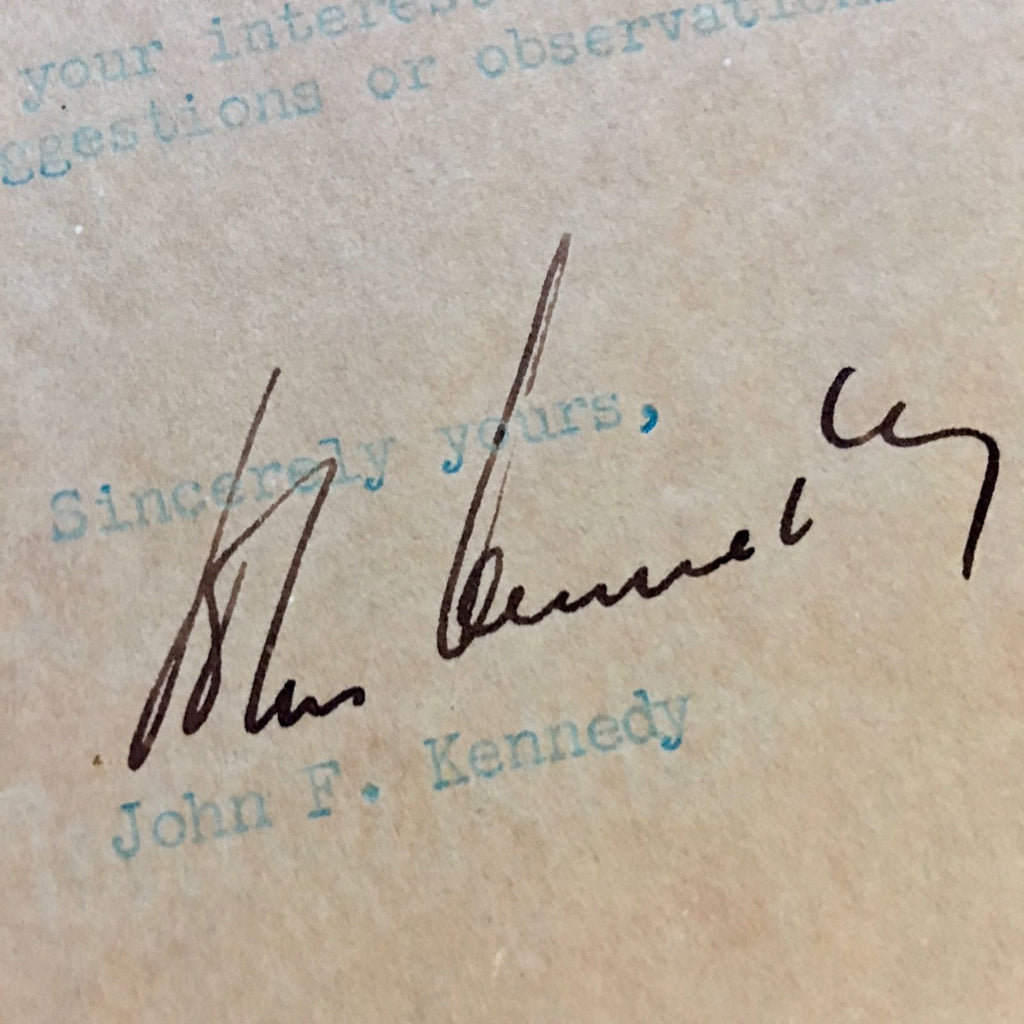 your interest
ggestions or observation
Sincerely yours,
John Kennedy
John F. Kennedy